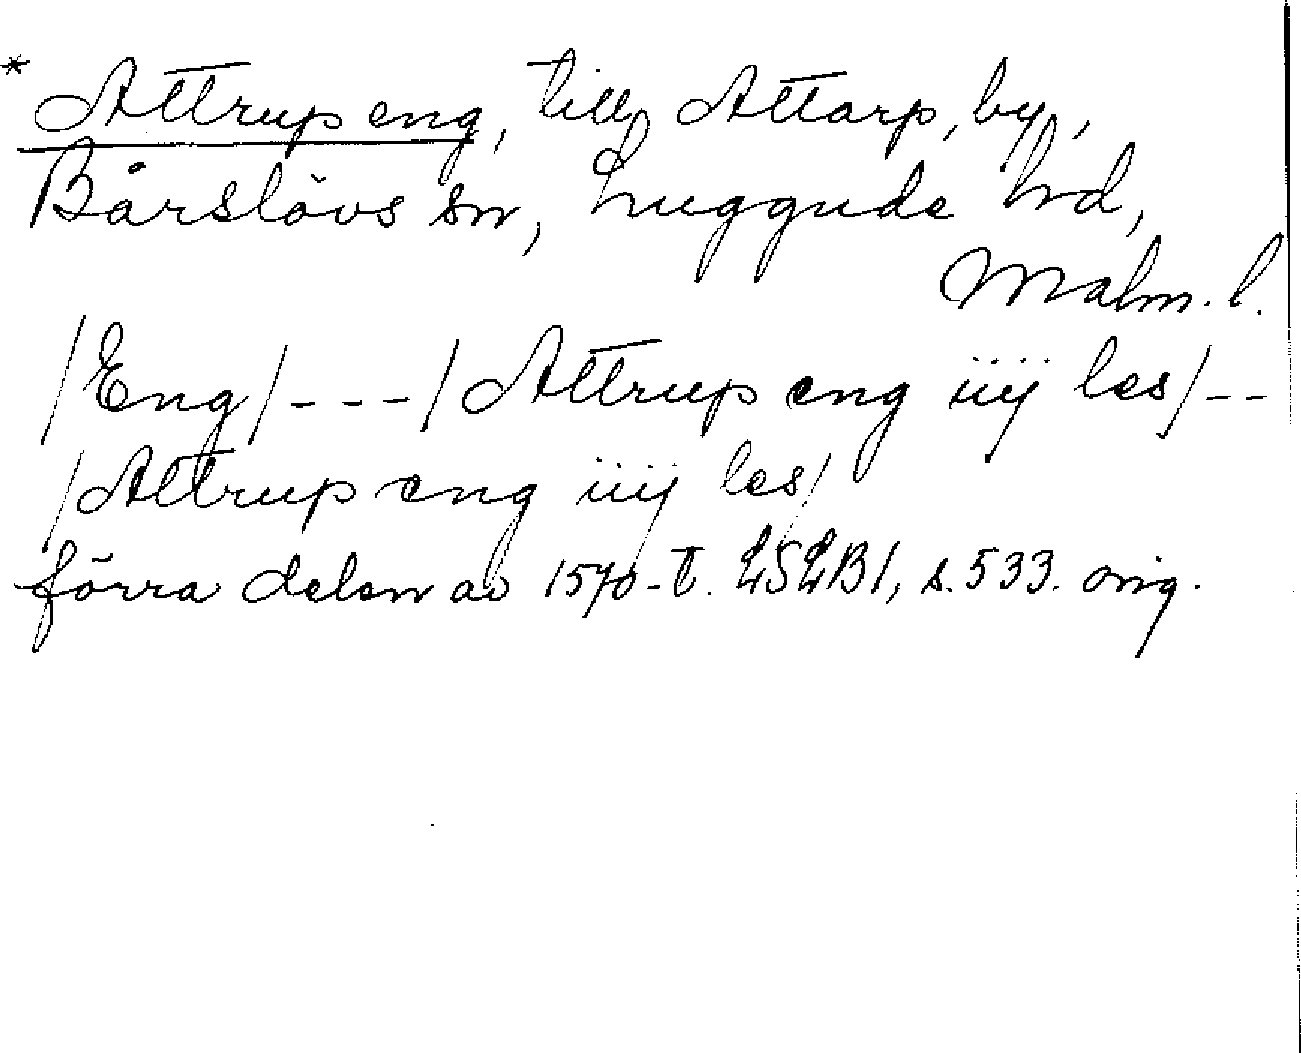 * Attrup eng, till Attarp, by,
Bårslövs sn, Luggude hd,
Malm. l.
/Eng/---/Attrup eng iiij les/--
/Attrup eng iiij les/
förra delen av 1570-t. LSLB1, s. 533. orig.